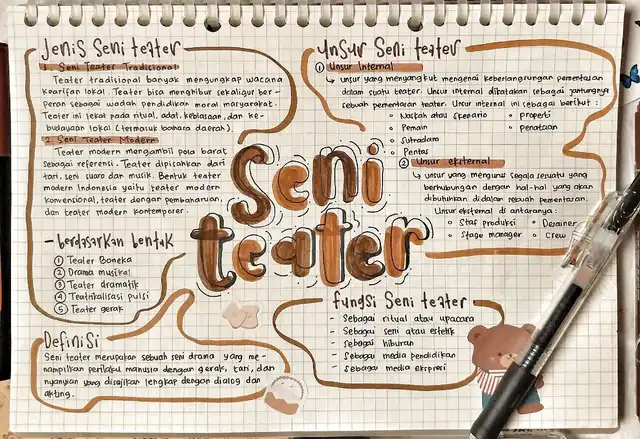 Jenis Seni teater
1. Seni Teater Tradisional
Teater tradisional banyak mengungkap wacana
kearifan lokal. Teater bisa menghibur sekaligur ber-
peran sebagai wadah pendidikan moral masyarakat.
Teater ini lekat pada ritual, adat, kebiasaan, dan ke-
budayaan lokal (termasuk bahasa daerah).
2. Seni Teater Modern
Teater modern mengambil pola barat
sebagai referensi. Teater dipisahkan dari
tari, seni suara dan musik. Bentuk teater
modern Indonesia yaitu teater modern
konvensional, teater dengan pembaharuan,
dan teater modern kontemporer.
- berdasarkan bentuk
1 Teater Boneka
2 Drama musikal
3 Teater dramatik
4 Teatrikalisasi puisi
5 Teater gerak
Definisi
Seni teater merupakan sebuah seni drama yang me-
nampilkan perilaku manusia dengan gerak, tari, dan
nyanyian yang disajikan lengkap dengan dialog dan
akting.
Seni
teater
Unsur Seni teater
1 Unsur Internal
↳ unsur yang menyangkut mengenai keberlangsungan pementasan
dalam suatu teater. Unsur internal dikatakan sebagai jantungnya
sebuah pementasan teater. Unsur internal ini sebagai berikut:
o Naskah atau skenario o properti
o Pemain o penataan
o Sutradara
o Pentas
2 Unsur eksternal
↳ unsur yang mengurus segala sesuatu yang
berhubungan dengan hal-hal yang akan
dibutuhkan didalam sebuah pementasan.
Unsur eksternal di antaranya:
o Staf produksi • Desainer
o Stage manager • Crew
Fungsi Seni teater
- Sebagai ritual atau upacara
- Sebagai seni atau estetik
- Sebagai hiburan
- Sebagai media pendidikan
- Sebagai media ekspresi